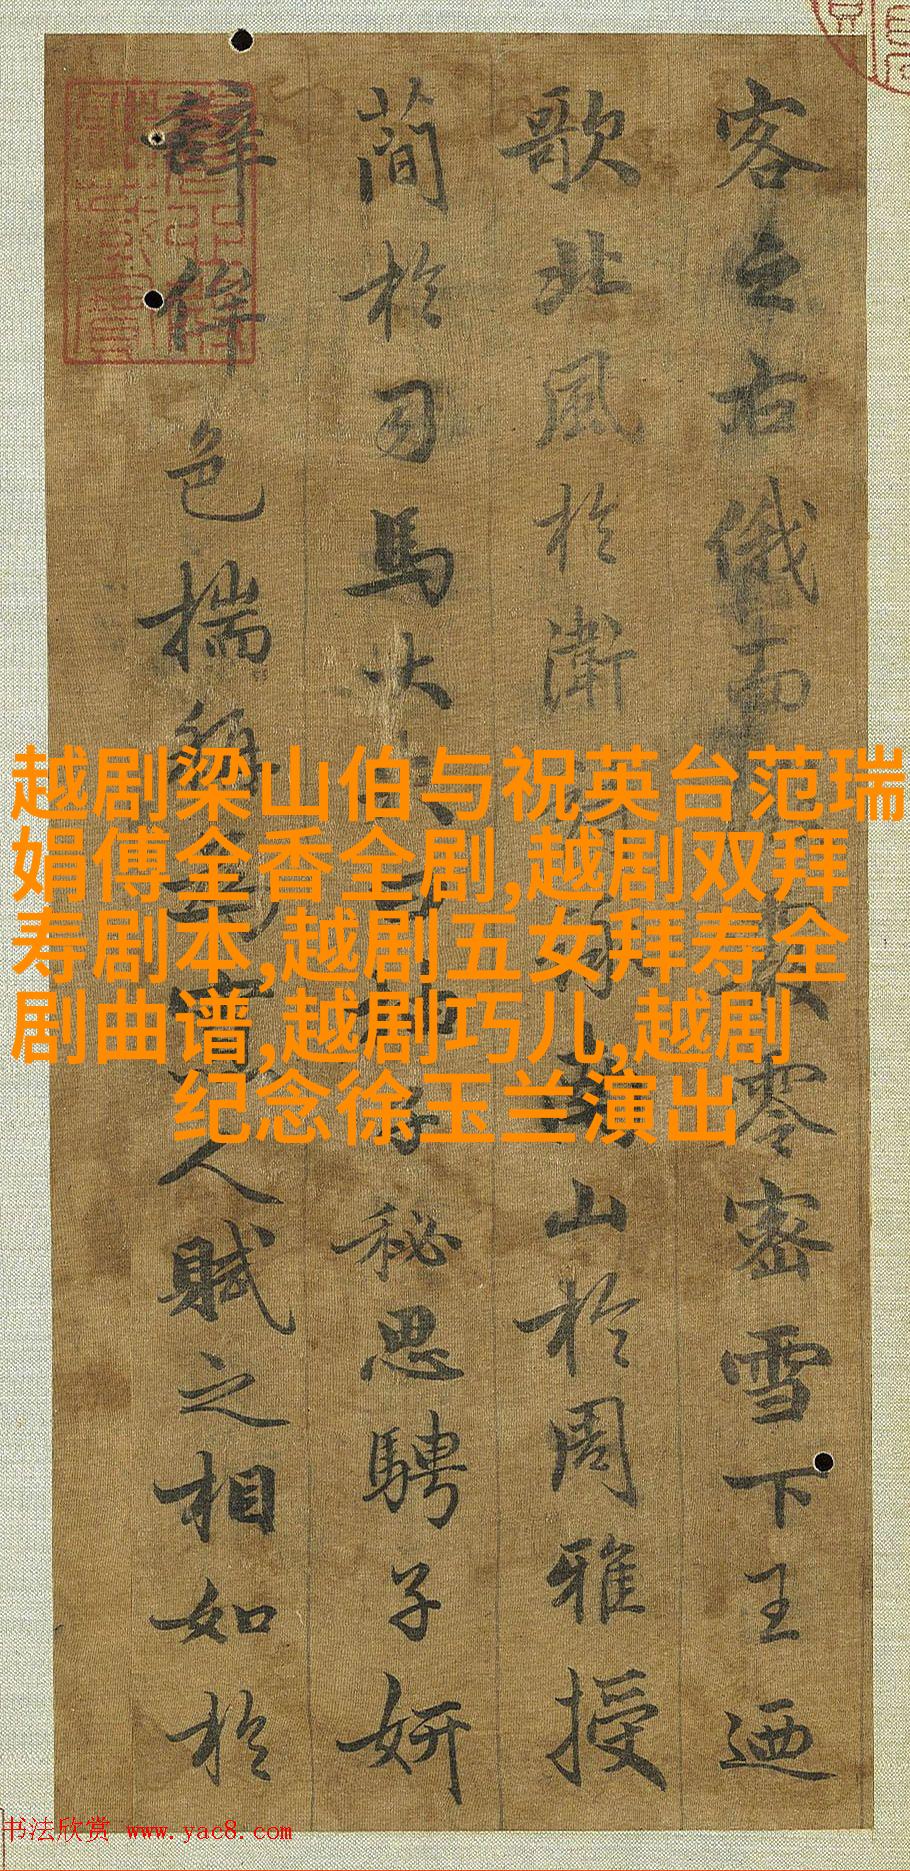 客之右俄而零密雪下王迺
歌北風於衛山於周雅授
簡於司馬大子秘思騁子妍
辭侔色揣稱人賦之相如於
越剧梁山伯与祝英台范瑞
娟傅全香全剧,越剧双拜
寿剧本,越剧五女拜寿全
剧曲谱,越剧巧儿,越剧
纪念徐玉兰演出
书法欣赏 www.yac8.com